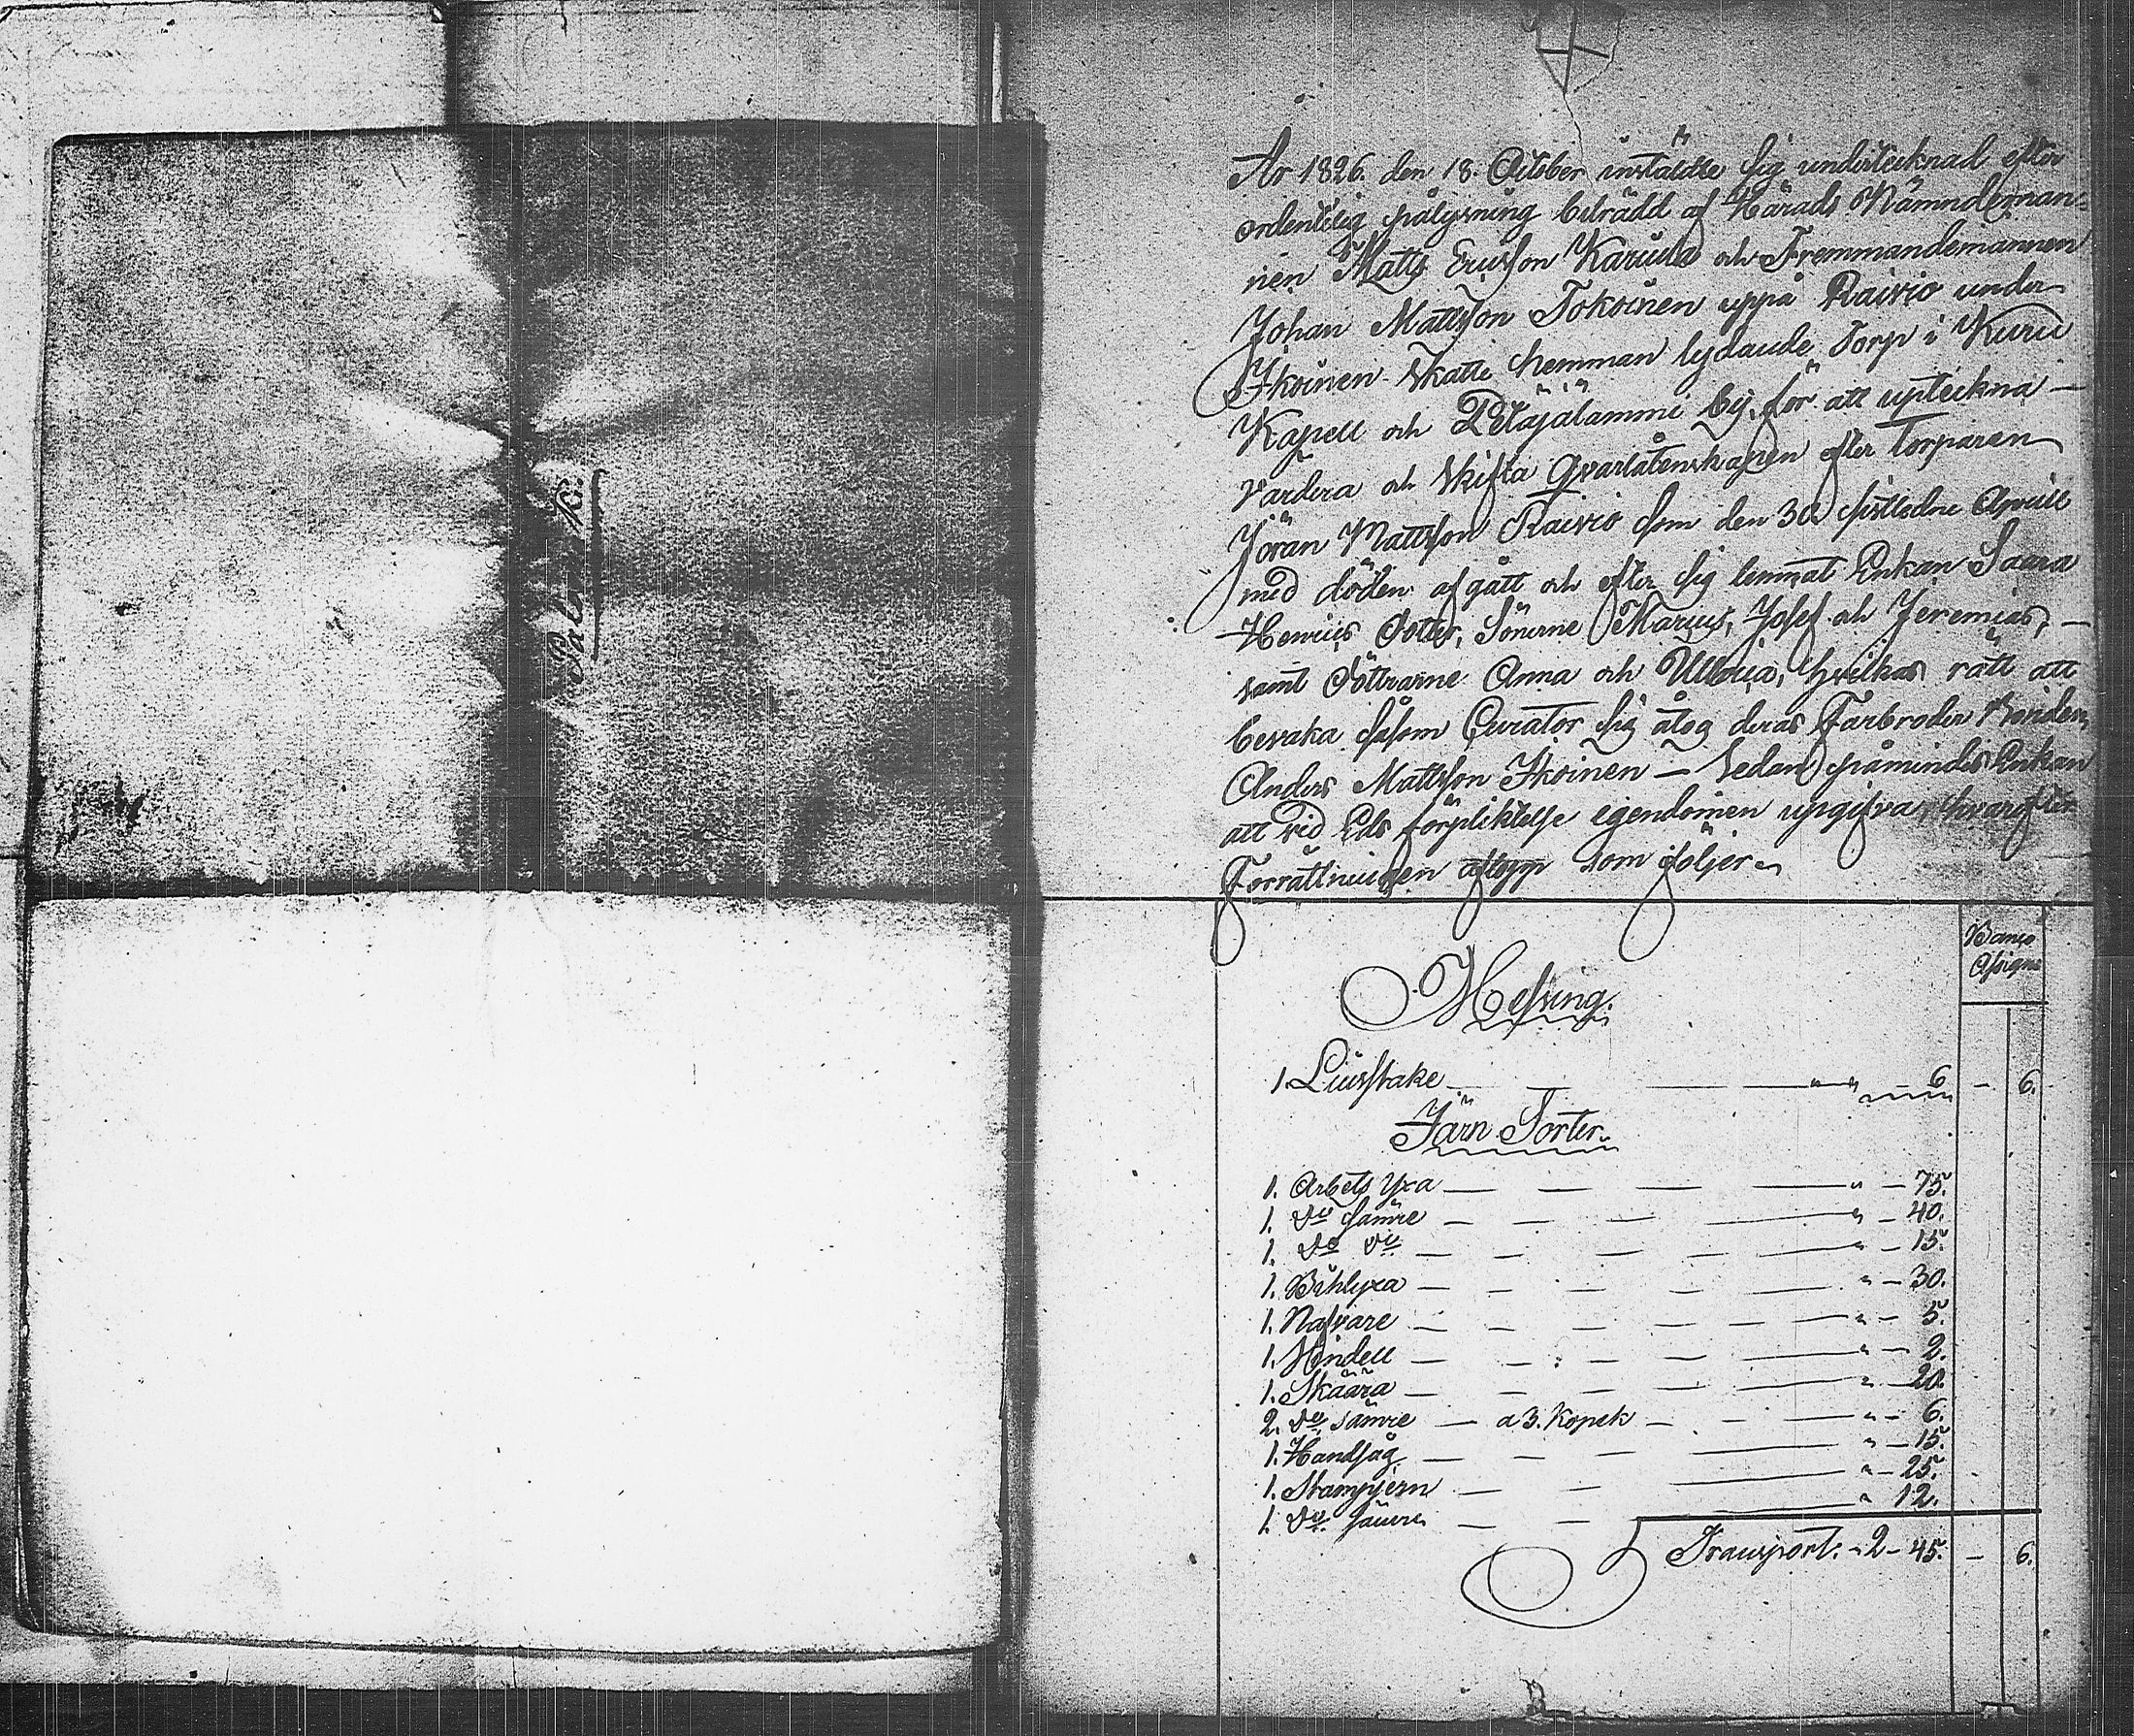 År 1826. den 18. October instäldte sig undertecknad efter
ordentelig pålysning biträdd af Härads Nämndeman-
nen Matts Ericsson Karula och Fremmandemannen
Johan Mattsson Tokoinen uppå Raivio under
Ikoinen Skatte hemman lydande Torp i Kuru
Kapell och Petäjälammi By, för att upteckna —
värdera och skifta Qvarlåtenskapen efter Torparen
Jöran Mattsson Raivio som den 30 sistledne Aprill
med döden afgått och efter sig lemnat Enkan Saara
Henrics Dotter, Sönerne Marcus, Josef och Jeremias, —
samt Döttrarne Anna och Ulbrica, hvilkas rätt att
bevaka såsom Curator sig åtog deras Farbroder Bonden
Anders Mattsson Ikoinen — Sedan påmindes Enkan
att vid Eds förpliktelse egendomen upgifva, hvarefter
Förrättningen aflopp som följer
Banco
Assigna
Messing.
1. Liusstake — — — " " — 6 — 6.
Järn Sorter.
1. Arbets yxa — — — — " — 75.
1. Do sämre — — — — " — 40.
1. Do Do — — — — " — 15.
1. Bihlyxa — — — — " — 30.
1. Nafvare — — — — " — 5.
1. — — — — " — 2.
1. Skäära — — — — " — 20.
2. Do sämre — a 3. Kopek — — — " — 6.
1. Handsåg — — — — " — 15.
1. Stampjern — — — " — 25.
1. Do sämre — — — " — 12.
Transport: - 2 — 45. — 6.